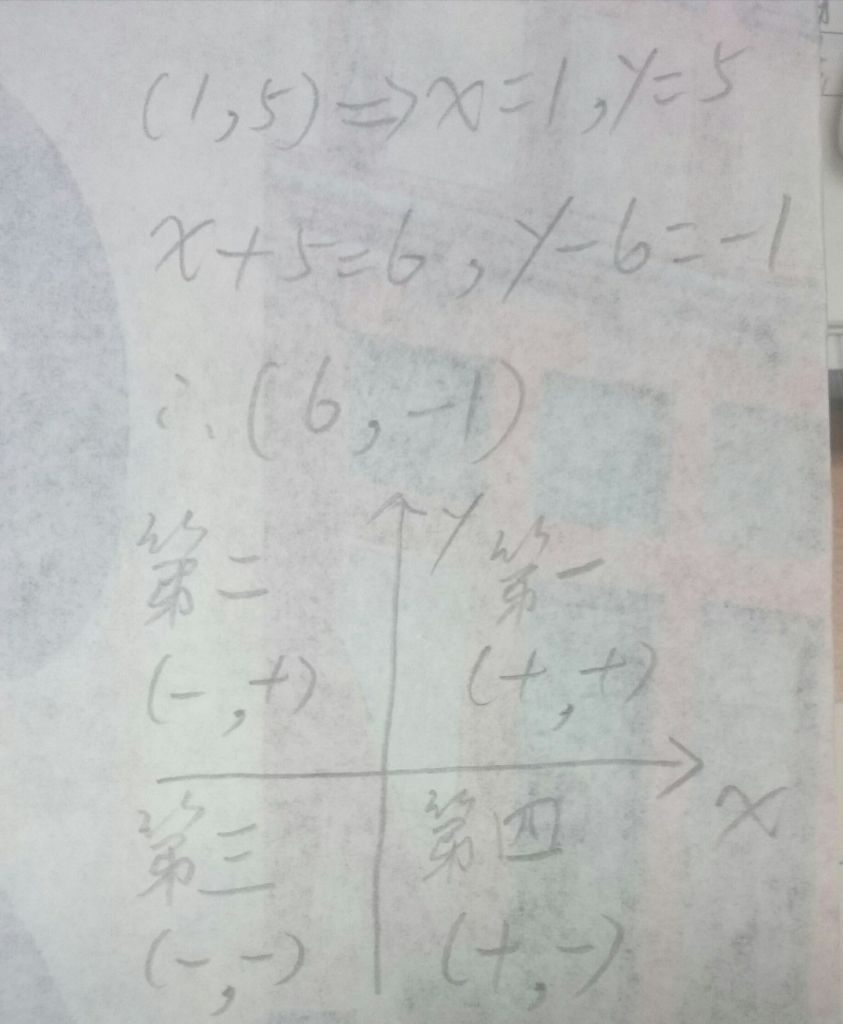 (1,5)⇒x=1,y=5
x+5=6,y-6=-1
∴(6,-1)
y
第二 第一
(-,+) (+,+)
x
第三 第四
(-,-) (+,-)